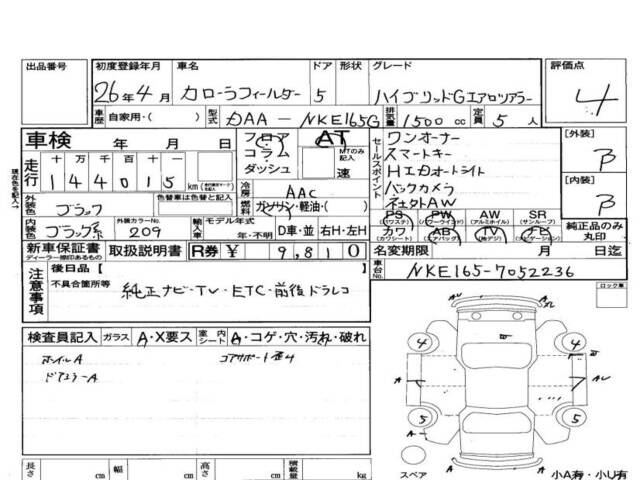 出品番号 初度登録年月 車名 ドア 形状 グレード 評価点
26年4月 カローラフィールダー 5 ハイブリッドGエアロツアラー 4
車歴 自家用・( ) 型式 DAA-NKE165G 排気量 1500cc 定員 5人
車検 年 月 日 フロア コラム ダッシュ AT MTのみ記入 速
走行 十 万 千 百 十 一
144015 km
セールスポイント
ワンオーナー
スマートキー
HIDオートライト
バックカメラ
社外AW
[外装] B
[内装] B
現在色を記入
外装色 ブラック 色替車は色替と記入
冷房 AAC
燃料 ガソリン・軽油・( )
内装色 ブラック系 外装カラーNo. 209 輸入車 モデル年式 年・不明 D車・並 右H・左H
PS (パワステ) PW (パワーウインド) AW (アルミホイル) SR (サンルーフ)
カワ (カワシート) AB (エアバッグ) TV (地デジ) ナビ (ナビゲーション) 純正品のみ丸印
新車保証書 ディーラー捺印あるもの 取扱説明書 R券 ¥ 9,810 名変期限 月 日迄
車台No. NKE165-7052236
注意事項 後日品 [ ]
不具合箇所等 純正ナビ・TV・ETC・前後ドラレコ
ロック車
検査員記入 ガラス A・X要ス 室内シート A・コゲ・穴・汚れ・破れ
ホイルA コアサポート歪み
ドアミラーA
4 4
A A AU
5 5
A
A
スペア 小A有・小U有
長さ cm 幅 cm 高さ cm 積載量 kg